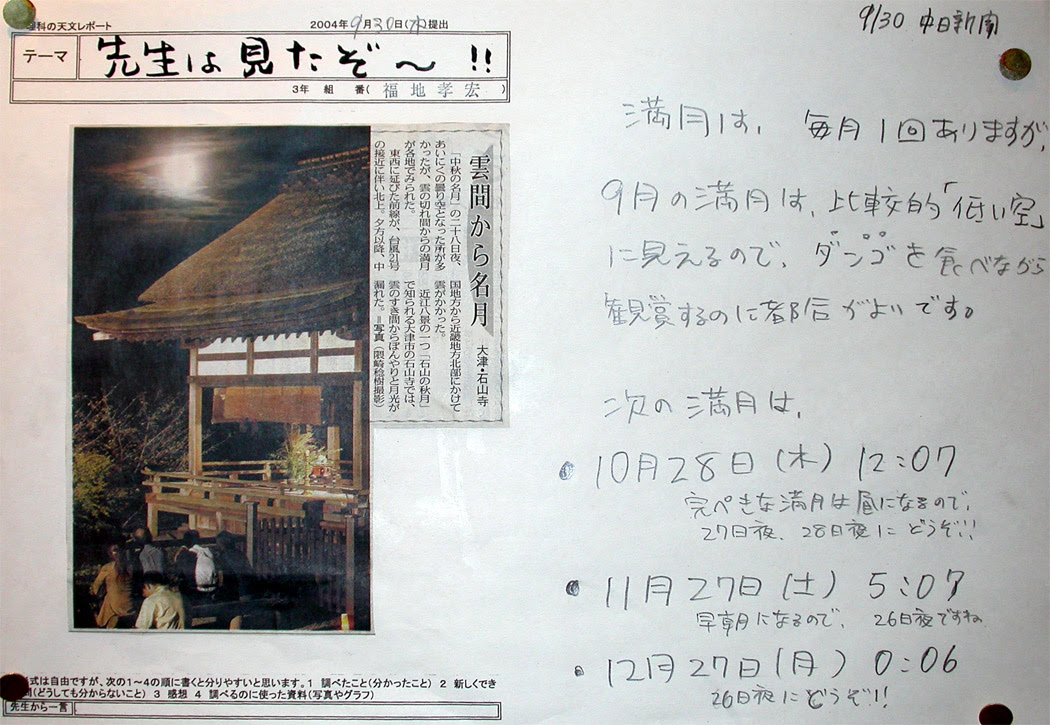 理科の天文レポート
2004年9月30日(木)提出
テーマ
先生は見たぞ〜!!
3年 組 番( 福地孝宏 )
雲間から名月
大津・石山寺
「中秋の名月」の二十八日夜、
あいにくの曇り空となった所が多
かったが、雲の切れ間からの満月
が各地でみられた。
東西に延びた前線が、台風21号
の接近に伴い北上。夕方以降、中
国地方から近畿地方北部にかけて
雲がかかった。
近江八景の一つ「石山の秋月」
で知られる大津市の石山寺では、
雲のすき間からぼんやりと月光が
漏れた。＝写真(隈崎稔樹撮影)
式は自由ですが、次の1〜4の順に書くと分りやすいと思います。1 調べたこと(分かったこと) 2 新しくでき
問(どうしても分からないこと) 3 感想 4 調べるのに使った資料(写真やグラフ)
先生から一言
9/30 中日新聞
満月は、毎月1回ありますが、
9月の満月は、比較的「低い空」
に見えるので、ダンゴを食べながら
観賞するのに都合がよいです。
次の満月は、
10月28日(木) 12:07
完ぺきな満月は昼になるので、
27日夜、28日夜にどうぞ!!
11月27日(土) 5:07
早朝になるので、26日夜ですね
12月27日(月) 0:06
26日夜にどうぞ!!